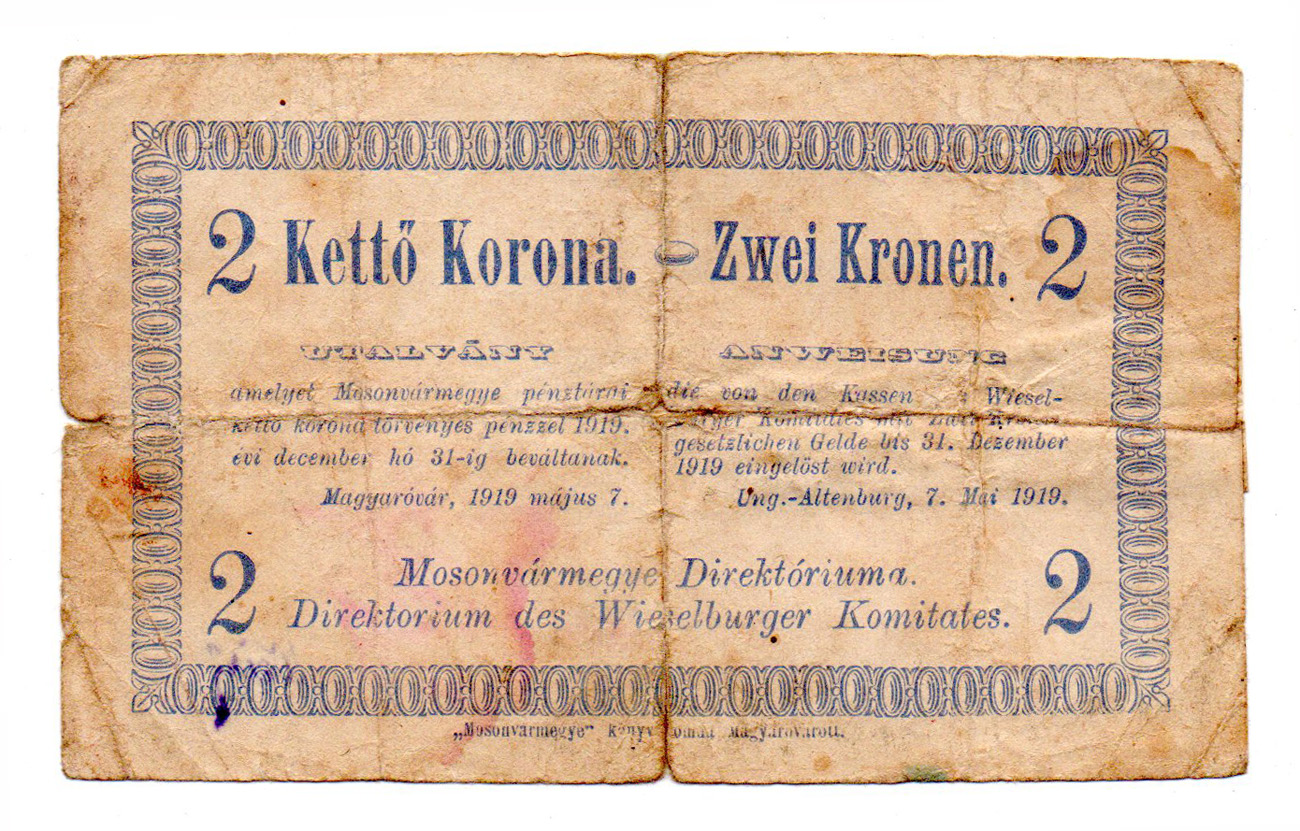 2 Kettő Korona. - Zwei Kronen. 2
UTALVÁNY
amelyet Mosonvármegye pénztárai
kettő korona törvényes pénzzel 1919.
évi december hó 31-ig beváltanak.
Magyaróvár, 1919 május 7.
ANWEISUNG
die von den Kassen Wiesel-
Komitates mit
gesetzlichen Gelde bis 31. Dezember
1919 eingelöst wird.
Ung.-Altenburg, 7. Mai 1919.
2 Mosonvármegye Direktóriuma. 2
Direktorium des Wieselburger Komitates.
„Mosonvármegye" Magyaróvárott.